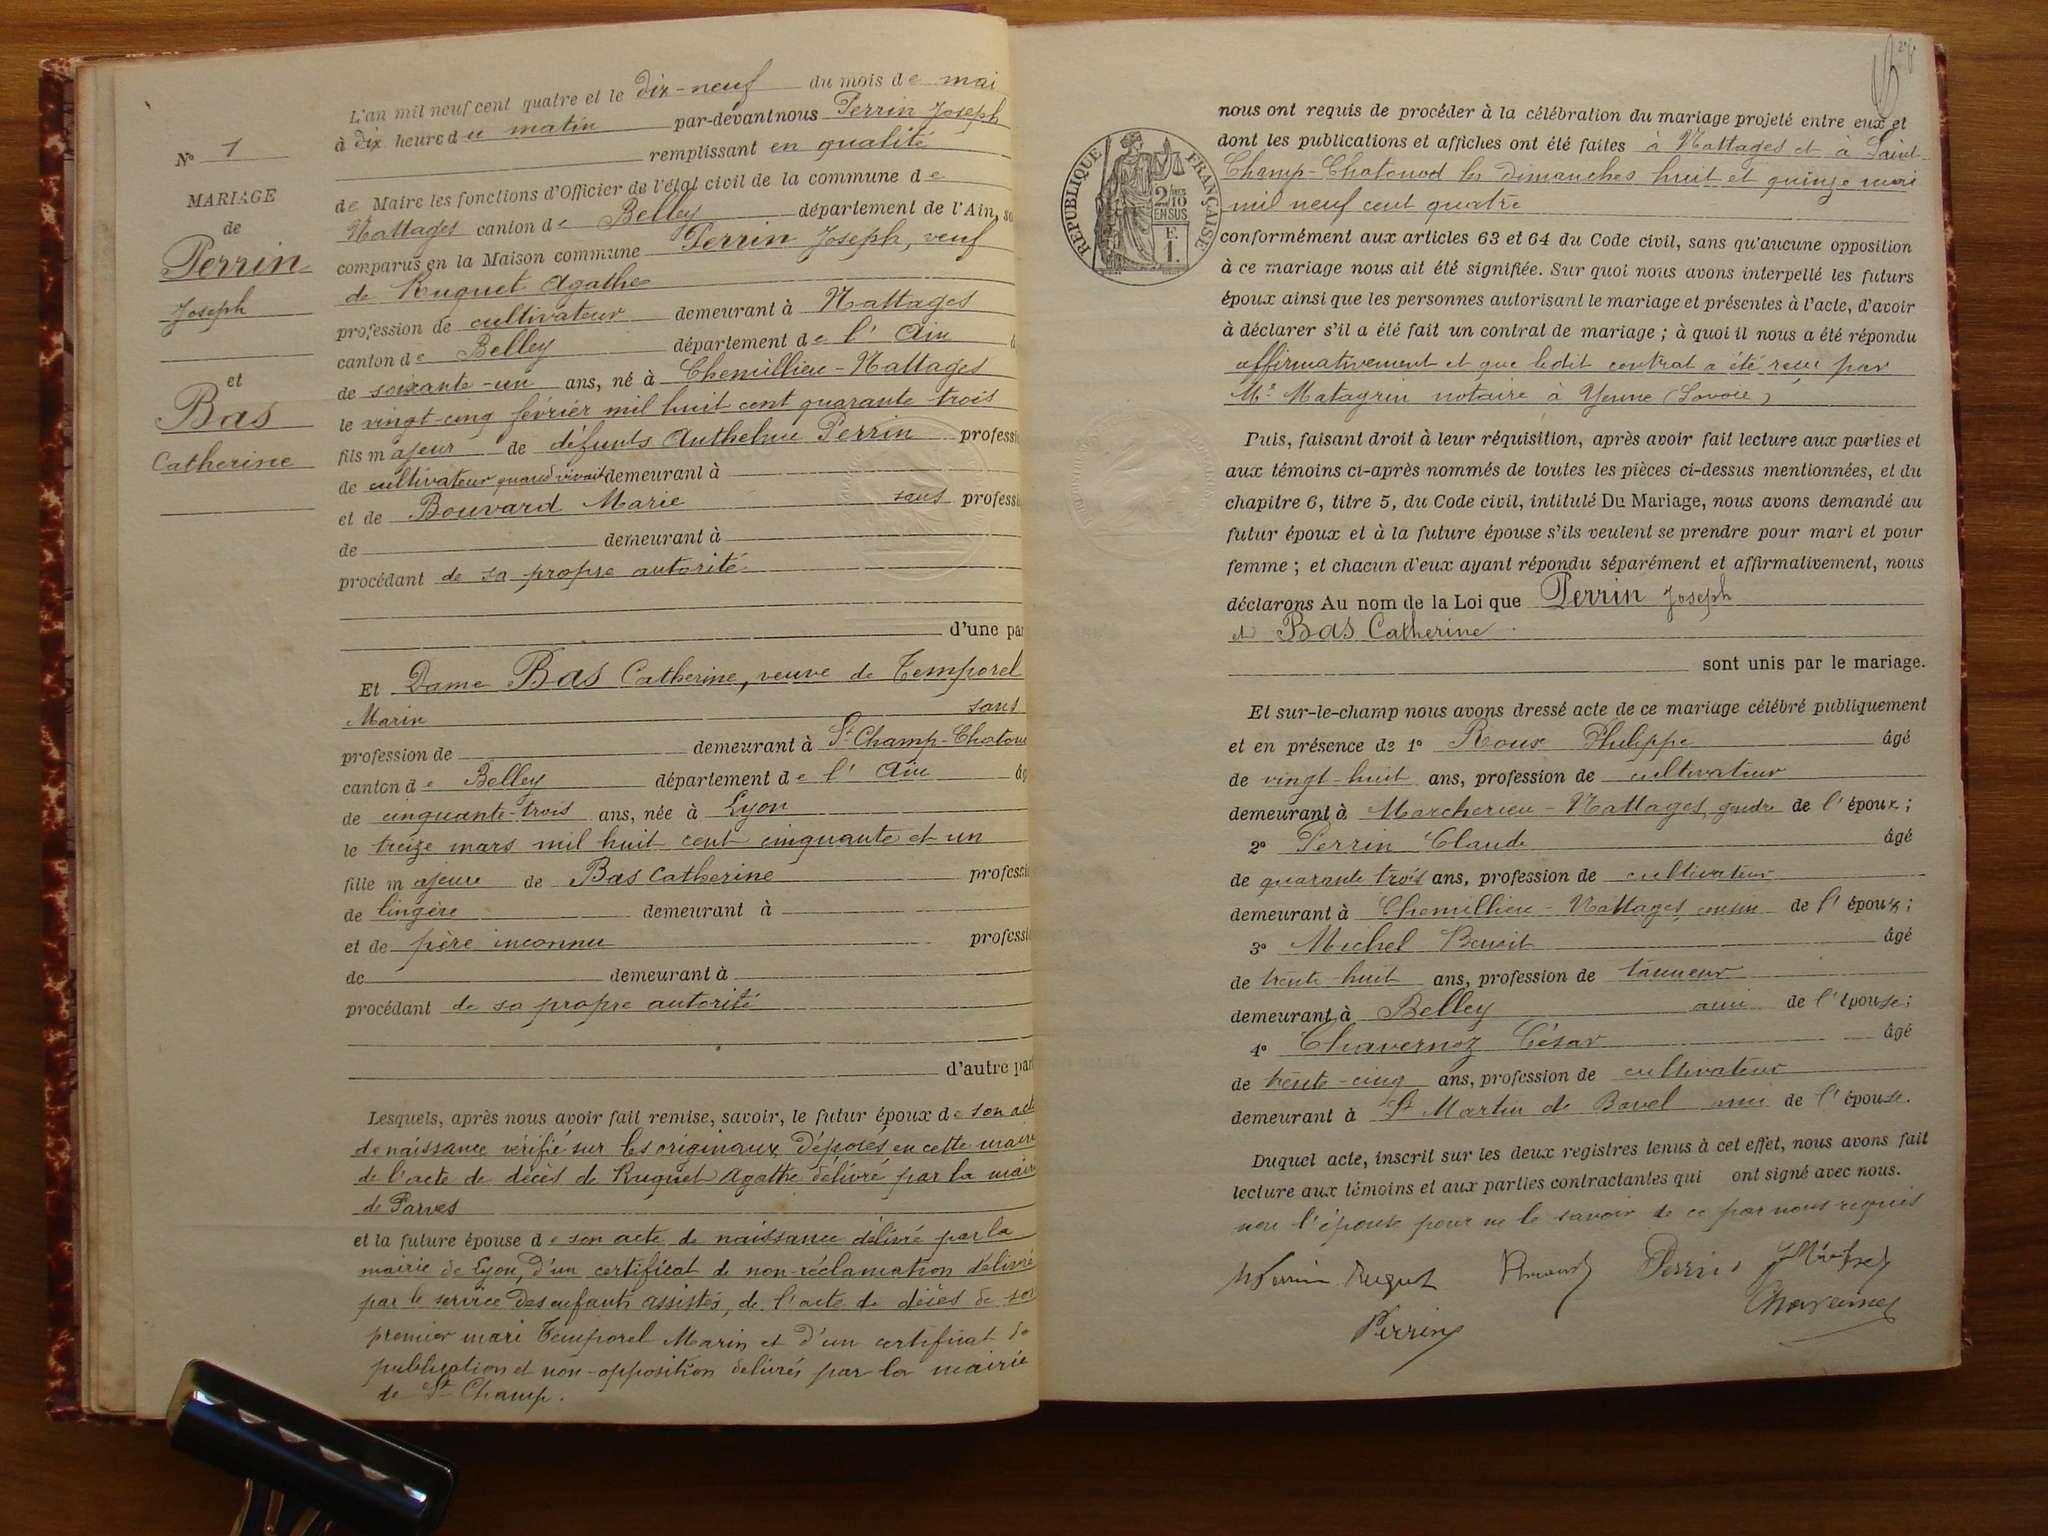 N° 1
MARIAGE
de
Perrin
Joseph
et
Bas
Catherine
L'an mil neuf cent quatre et le dix-neuf du mois de mai
à dix heure du matin par-devant nous Perrin Joseph
remplissant en qualité
de Maire les fonctions d'Officier de l'état civil de la commune de
Nattages canton de Belley département de l'Ain, so
comparus en la Maison commune Perrin Joseph, veuf
de Ruguet Agathe
profession de cultivateur demeurant à Nattages
canton de Belley département de l'Ain
de soixante-un ans, né à Chemillieu-Nattages
le vingt-cinq février mil huit cent quarante trois
fils majeur de défunts Anthelme Perrin professio
de cultivateur quand vivait demeurant à
et de Bouvard Marie sans professi
de demeurant à
procédant de sa propre autorité
d'une par
Et Dame Bas Catherine, veuve de Temporel
Marin sans
profession de demeurant à St Champ-Chaton
canton de Belley département de l'Ain âg
de cinquante-trois ans, née à Lyon
le treize mars mil huit cent cinquante et un
fille majeure de Bas Catherine professi
de lingère demeurant à
et de père inconnu professi
de demeurant à
procédant de sa propre autorité
d'autre par
Lesquels, après nous avoir fait remise, savoir, le futur époux de son acte
de naissance vérifié sur les originaux déposés en cette mairie
de l'acte de décès de Ruguet Agathe délivré par la mairie
de Parves
et la future épouse de son acte de naissance délivré par la
mairie de Lyon, d'un certificat de non-réclamation délivré
par le service des enfants assistés, de l'acte de décès de son
premier mari Temporel Marin et d'un certificat de
publication et non-opposition délivrés par la mairie
de St Champ.
REPUBLIQUE FRANÇAISE
2/10
EN SUS
F.
1.
nous ont requis de procéder à la célébration du mariage projeté entre eux et
dont les publications et affiches ont été faites à Nattages et à Saint-
Champ-Chatonod les dimanches huit et quinze mai
mil neuf cent quatre
conformément aux articles 63 et 64 du Code civil, sans qu'aucune opposition
à ce mariage nous ait été signifiée. Sur quoi nous avons interpellé les futurs
époux ainsi que les personnes autorisant le mariage et présentes à l'acte, d'avoir
à déclarer s'il a été fait un contrat de mariage ; à quoi il nous a été répondu
affirmativement et que ledit contrat a été reçu par
Me Matagrin notaire à Yenne (Savoie)
Puis, faisant droit à leur réquisition, après avoir fait lecture aux parties et
aux témoins ci-après nommés de toutes les pièces ci-dessus mentionnées, et du
chapitre 6, titre 5, du Code civil, intitulé Du Mariage, nous avons demandé au
futur époux et à la future épouse s'ils veulent se prendre pour mari et pour
femme ; et chacun d'eux ayant répondu séparément et affirmativement, nous
déclarons Au nom de la Loi que Perrin Joseph
et Bas Catherine
sont unis par le mariage.
Et sur-le-champ nous avons dressé acte de ce mariage célébré publiquement
et en présence de 1° Roux Philippe âgé
de vingt-huit ans, profession de cultivateur
demeurant à Marcherieu-Nattages, gendre de l'époux ;
2° Perrin Claude âgé
de quarante trois ans, profession de cultivateur
demeurant à Chemillieu-Nattages, cousin de l'époux ;
3° Michel Benoit âgé
de trente-huit ans, profession de tanneur
demeurant à Belley ami de l'épouse ;
4° Chavernoz César âgé
de trente-cinq ans, profession de cultivateur
demeurant à St Martin de Bavel ami de l'épouse.
Duquel acte, inscrit sur les deux registres tenus à cet effet, nous avons fait
lecture aux témoins et aux parties contractantes qui ont signé avec nous.
non l'épouse pour ne le savoir de ce par nous requis
Perrin Ruguet Perrin
Perrin